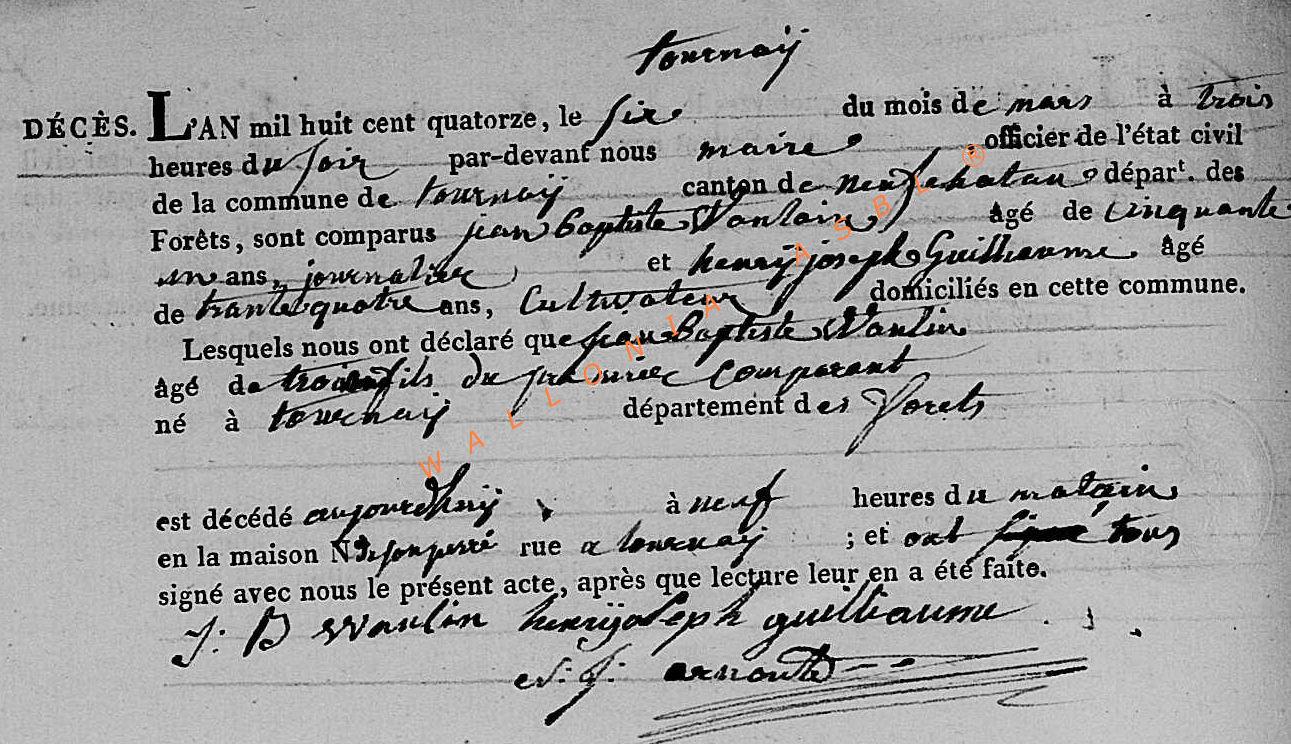 tournaÿ
DÉCÈS. L'AN mil huit cent quatorze, le six du mois de mars à trois
heures du soir par-devant nous maire officier de l'état civil
de la commune de tournaÿ canton de neufchatau départ. des
Forêts, sont comparus jean Baptiste Wanlain âgé de cinquante
un ans, journalier et henrÿ joseph Guilliaume âgé
de trante quatre ans, Cultivateur domiciliés en cette commune.
Lesquels nous ont déclaré que jean Baptiste Wanlin
âgé de fils du premier comparant
né à tournaÿ département des forets
est décédé aujourdhuÿ à neuf heures du matain
en la maison N de son perre rue a tournaÿ ; et ont tous
signé avec nous le présent acte, après que lecture leur en a été faite.
J: B Wanlin henrÿ joseph guilliaume
J: arnould
WALLONIA ASBL ®